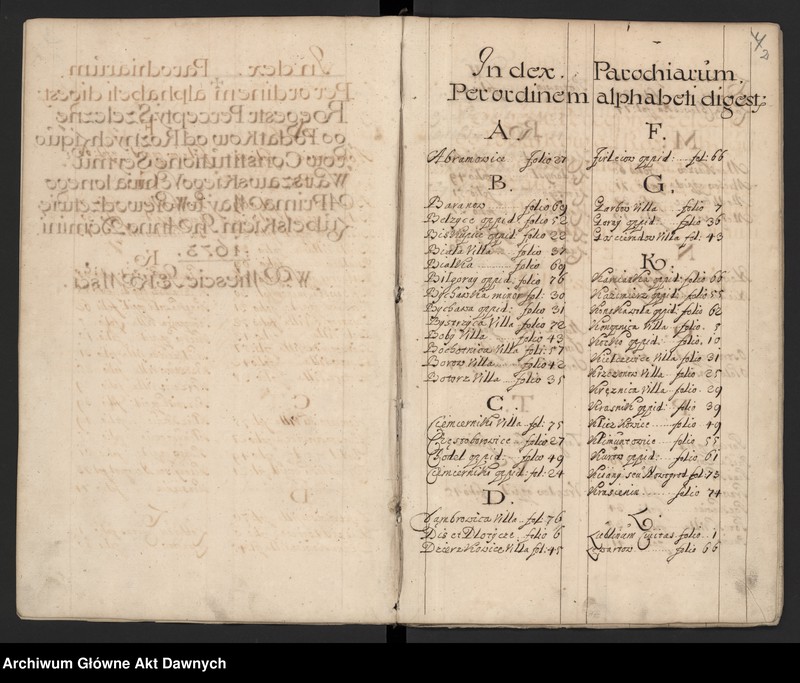 In dex. Parochiarum.
Per ordinem alphabeti digest
A.
Abramowice folio 27
B.
Baranow folio 69
Bełzyce oppid: folio 52
Biskupice oppid: folio 22
Biała Villa folio 37
Białka folio 69
Biłgoray oppid: folio 76
Bychawka minor fol: 30
Bychawa oppid: folio 31
Bystrzyca Villa folio 72
Boby Villa folio 43
Bochotnica Villa fol: 57
Borow Villa folio 42
Botorz Villa folio 35
C.
Ciemierniki Villa fol: 75
Częstoborowice folio 27
Chodel oppid: folio 49
Ciemierniki oppid: fol: 24
D.
Dambrowica Villa fol: 76
Dis et Dłotycze folio 6
Dzierzkowice Villa fol: 45
F.
Firleiow oppid: fol: 66
G.
Garbow Villa folio 7
Goray oppid: folio 36
Gosciaradow Villa fol: 43
K.
Kamionka oppid: folio 66
Kazimierz oppid: folio 55
Konskawola oppid: folio 62
Konopnica Villa folio. 5
Kocko oppid: folio, 10
Kiełczewice Villa folio 31
Krzczonow Villa folio 25
Krężnica Villa folio 29
Krasnik oppid: folio 39
Kliczkowice folio 49
Klimuntowice folio 55
Kurow oppid: folio 61
Xsiąny seu Nowogrod fol: 73
Krasienin folio 74
L.
Lublinum Civitas folio 1
Lewartow folio 66
Archiwum Główne Akt Dawnych